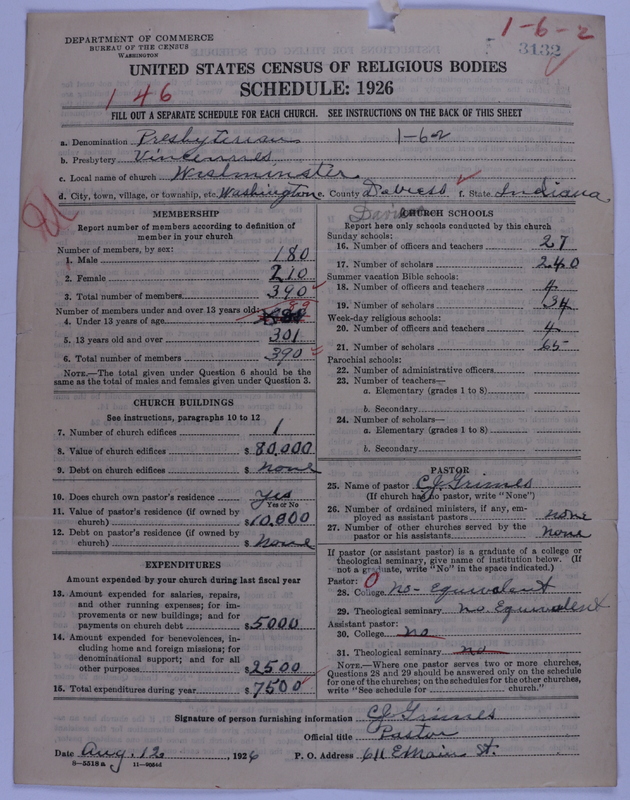 1-6-2
3132
DEPARTMENT OF COMMERCE
BUREAU OF THE CENSUS
WASHINGTON
UNITED STATES CENSUS OF RELIGIOUS BODIES
SCHEDULE: 1926
1 46
FILL OUT A SEPARATE SCHEDULE FOR EACH CHURCH. SEE INSTRUCTIONS ON THE BACK OF THIS SHEET
a. Denomination Presbyterian 1-62
b. Presbytery Vincennes
c. Local name of church Westminster
d. City, town, village, or township, etc. Washington e. County Daviess f. State Indiana
MEMBERSHIP
Report number of members according to definition of
member in your church
Number of members, by sex:
1. Male 180
2. Female 210
3. Total number of members 390
Number of members under and over 13 years old:
4. Under 13 years of age 89
5. 13 years old and over 301
6. Total number of members 390
NOTE.—The total given under Question 6 should be the
same as the total of males and females given under Question 3.
CHURCH BUILDINGS
See instructions, paragraphs 10 to 12
7. Number of church edifices 1
8. Value of church edifices $ 80,000
9. Debt on church edifices $ none
10. Does church own pastor's residence yes
Yes or No
11. Value of pastor's residence (if owned by
church) $ 10,000
12. Debt on pastor's residence (if owned by
church) $ none
EXPENDITURES
Amount expended by your church during last fiscal year
13. Amount expended for salaries, repairs,
and other running expenses; for im-
provements or new buildings; and for
payments on church debt $ 5000
14. Amount expended for benevolences, in-
cluding home and foreign missions; for
denominational support; and for all
other purposes $ 2500
15. Total expenditures during year $ 7500
CHURCH SCHOOLS
Report here only schools conducted by this church
Sunday schools:
16. Number of officers and teachers 27
17. Number of scholars 240
Summer vacation Bible schools:
18. Number of officers and teachers 4
19. Number of scholars 134
Week-day religious schools:
20. Number of officers and teachers 4
21. Number of scholars 65
Parochial schools:
22. Number of administrative officers
23. Number of teachers—
a. Elementary (grades 1 to 8)
b. Secondary
24. Number of scholars—
a. Elementary (grades 1 to 8)
b. Secondary
PASTOR
25. Name of pastor C J Grimes
(If church has no pastor, write "None")
26. Number of ordained ministers, if any, em-
ployed as assistant pastors none
27. Number of other churches served by the
pastor or his assistants none
If pastor (or assistant pastor) is a graduate of a college or
theological seminary, give name of institution below. (If
not a graduate, write "No" in the space indicated.)
Pastor: 0
28. College no - Equivalent
29. Theological seminary no Equivalent
Assistant pastor:
30. College no
31. Theological seminary no
NOTE.—Where one pastor serves two or more churches,
Questions 28 and 29 should be answered only on the schedule
for one of the churches; on the schedules for the other churches,
write "See schedule for church."
Signature of person furnishing information C J Grimes
Official title Pastor
Date Aug. 12, 1926 P. O. Address 611 E Main St.
8—5518 a 11—9084d